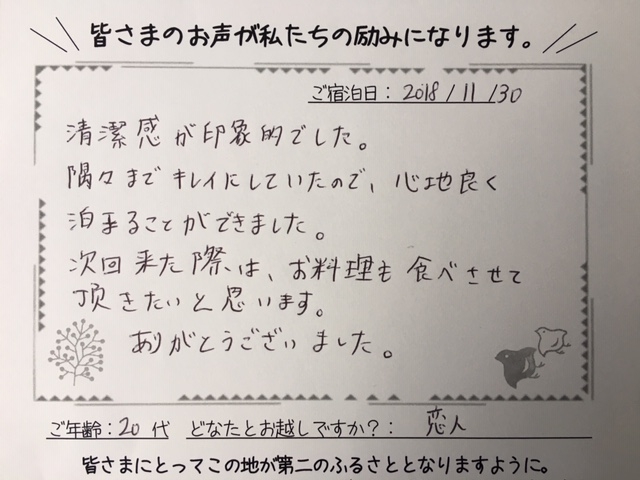 皆さまのお声が私たちの励みになります。
ご宿泊日： 2018 / 11 / 30
清潔感が印象的でした。
隅々までキレイにしていたので、心地良く
泊まることができました。
次回来た際は、お料理も食べさせて
頂きたいと思います。
ありがとうございました。
ご年齢：20代 どなたとお越しですか？： 恋人
皆さまにとってこの地が第二のふるさととなりますように。